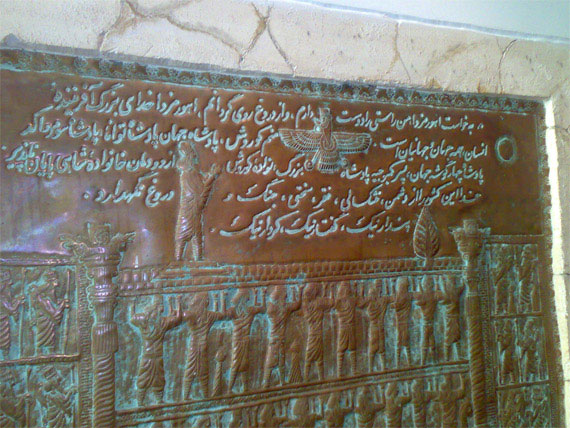 به خواست اهورمزدا من راستی را دوست دارم، و از دروغ روی گردانم، اهورمزدا خدای بزرگ آفریننده
انسان همه جهان و جهانیان است. من کوروش، پادشاه جهان، پادشاه توانا، پادشاه
پادشاه چهار گوشه جهان، پسر کمبوجیه پادشاه بزرگ، نواده کوروش از دودمان خانواده شاهی پایان ناپذیر
خدا این کشور را از دشمن، خشکسالی، فقر، جنگ و دروغ نگهدارد.
پندار نیک، گفتار نیک، کردار نیک.